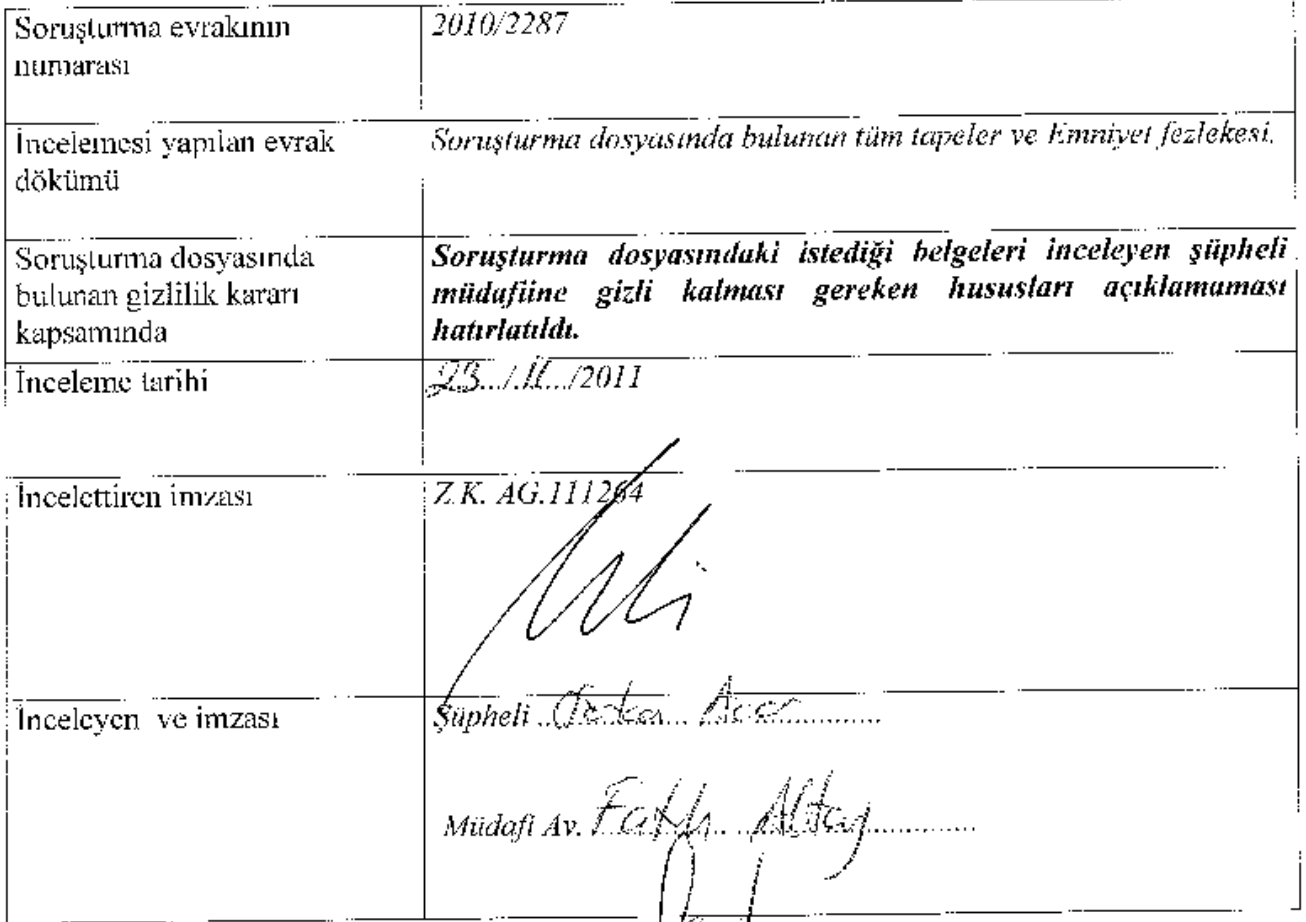 Soruşturma evrakının
numarası
2010/2287
İncelemesi yapılan evrak
dökümü
Soruşturma dosyasında bulunan tüm tapeler ve Emniyet fezlekesi.
Soruşturma dosyasında
bulunan gizlilik kararı
kapsamında
Soruşturma dosyasındaki istediği belgeleri inceleyen şüpheli
müdafiine gizli kalması gereken hususları açıklamaması
hatırlatıldı.
İnceleme tarihi
23.../.11.../2011
İncelettiren imzası
Z.K. AG.111264
İnceleyen ve imzası
Şüpheli
Müdafi Av. Fatih Altay